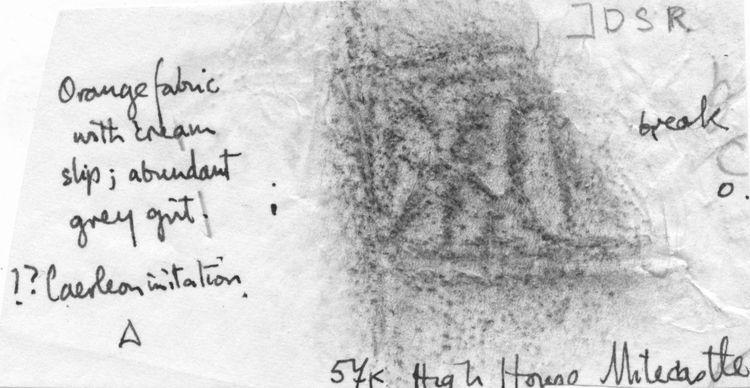 ]DSR
Orange fabric
with cream
slip; abundant
grey grit.
!? Caerleon imitation.
break
57K High House Milecastle